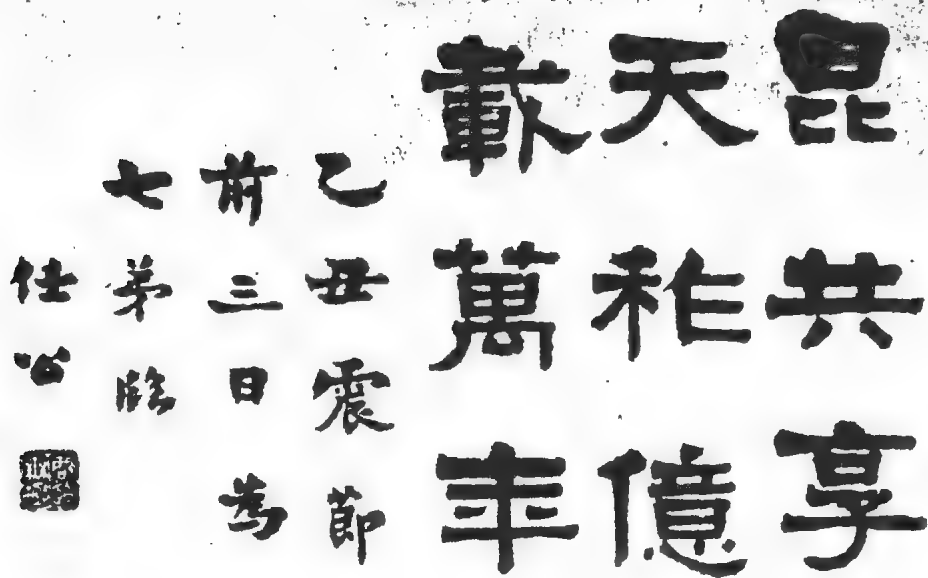 昆共享
天祚億
載萬年
乙丑震節
前三日為
七弟臨
任公